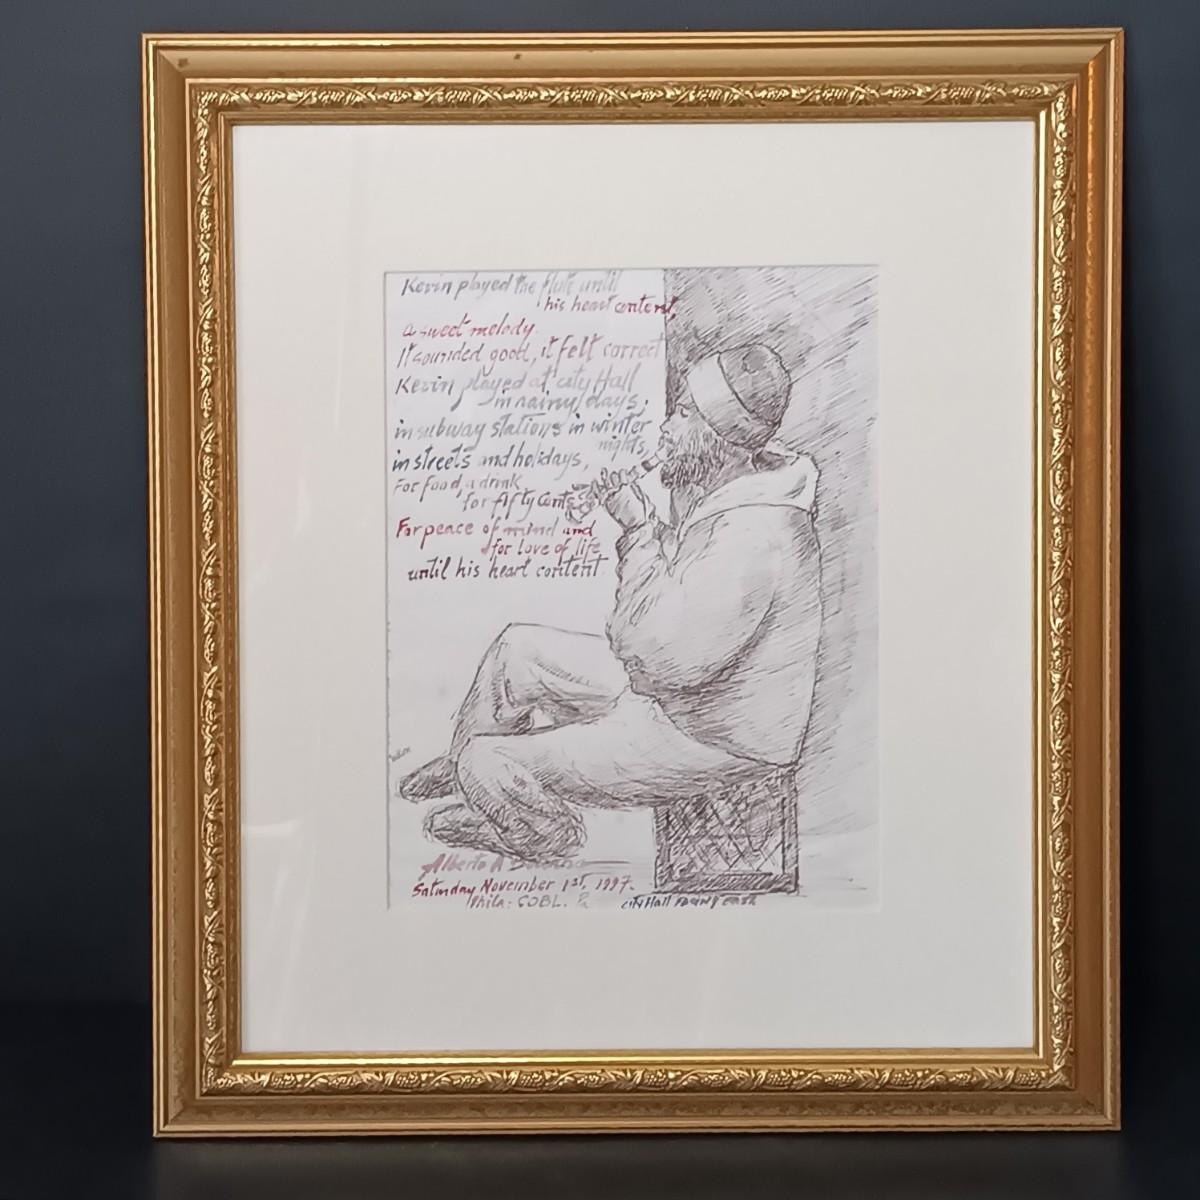 Kevin played the flute until
his heart content,
a sweet melody.
It sounded good, it felt correct
Kevin played at city Hall
in rainy days;
in subway stations in winter
nights,
in streets and holidays,
For food, a drink
for fifty cents
For peace of mind and
for love of life
until his heart content.
Alberto A
Saturday November 1st, 1997.
Phila: COBL. Pa
city Hall Facing east